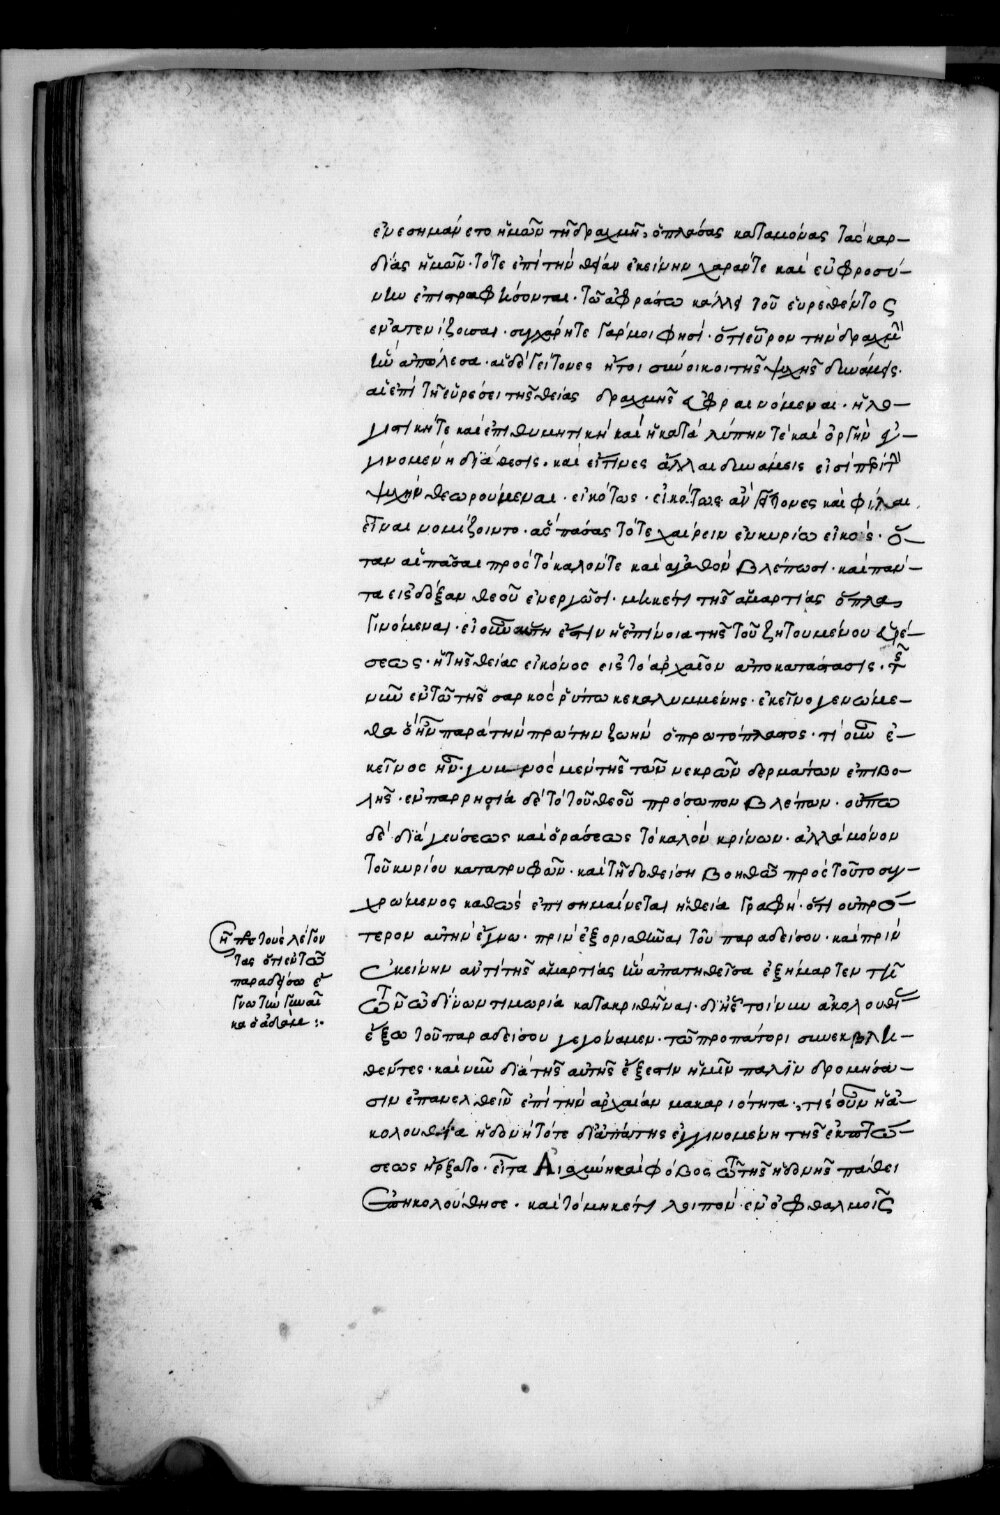 ἐνεσημάνετο ἡμῶν τῇ δραχμῇ, ὁ πλάσας καταμόνας τὰς καρ-
δίας ἡμῶν· τότε ἐπὶ τὴν θείαν ἐκείνην χαράν τε καὶ εὐφροσύ-
νην ἐπιστραφήσονται· τῶ ἀφράστω κάλλει τοῦ εὑρεθέντος
ἐνατενίζουσαι· συγχάρητέ γάρ μοι φησὶ· ὅτι εὗρον τὴν δραχμὴν
ἣν ἀπώλεσα· αἱ δὲ γείτονες ἤτοι σύνοικοι τῆς ψυχῆς δυνάμεις·
αἱ ἐπὶ τῆ εὑρέσει τῆς θείας δραχμῆς εὐφραινόμεναι· ἡ λο-
γιστική τε καὶ ἐπιθυμητικὴ καὶ ἡ κατὰ λύπην τὲ καὶ ὀργὴν ἐγ-
γινομένη διάθεσις· καὶ εἴ τινες ἄλλαι δυνάμεις εἰσὶ περὶ τὴν
ψυχὴν θεωρούμεναι· εἰκότως· εἰκότως ἂν γείτονες καὶ φίλαι
εἶναι νομίζοιντο· ἃς πάσας τότε χαίρειν ἐν κυρίω εἰκὸς· ὅ-
ταν αἱ πᾶσαι πρὸς τὸ καλόν τε καὶ ἀγαθὸν βλέπωσι· καὶ πάν-
τα εἰς δόξαν θεοῦ ἐνεργῶσι· μηκέτι τῆς ἁμαρτίας ὅπλα
γινόμεναι· εἰ οὖν αὕτη ἐστὶν ἡ ἐπίνοια τῆς τοῦ ζητουμένου εὑρέ-
σεως· ἡ τῆς θείας εἰκόνος εἰς τὸ ἀρχαῖον ἀποκατάστασις· τῆς
νῦν ἐν τῶ τῆς σαρκὸς ῥύπω κεκαλυμμένης· ἐκεῖνο γενώμε-
θα ὃ ἦν παρὰ τὴν πρώτην ζωὴν ὁ πρωτόπλαστος· τί οὖν ἐ-
κεῖνος ἦν· γυμνὸς μὲν τῆς τῶν νεκρῶν δερμάτων ἐπιβο-
λῆς· ἐν παρρησία δὲ τὸ τοῦ θεοῦ πρόσωπον βλέπων· οὔπω
δὲ διὰ γεύσεως καὶ ὁράσεως τὸ καλὸν κρίνων· ἀλλὰ μόνον
τοῦ κυρίου κατατρυφῶν· καὶ τῆ δοθείση βοηθῶ πρὸς τοῦτο συγ-
χρώμενος καθὼς ἐπισημαίνεται ἡ θεία γραφὴ· ὅτι οὐ πρό-
τερον αὐτὴν ἔγνω· πρὶν ἐξορισθῆναι τοῦ παραδείσου· καὶ πρὶν
ἐκείνην ἀντὶ τῆς ἁμαρτίας ἣν ἀπατηθεῖσα ἐξήμαρτεν τῆ
τῶν ὠδίνων τιμωρία κατακριθῆναι· δι' ἧς τοίνυν ἀκολουθίας
ἔξω τοῦ παραδείσου γεγόναμεν· τῶ προπάτορι συνεκβλη-
θέντες· καὶ νῦν διὰ τῆς αὐτῆς ἔξεστιν ἡμῖν παλινδρομήσα-
σιν ἐπανελθεῖν ἐπὶ τὴν ἀρχαίαν μακαριότητα· τίς οὖν ἡ ἀ-
κολουθία ἡδονὴ τότε δι' ἀπάτης ἐγγινομένη τῆς ἐκπτώ-
σεως ἤρξατο· εἶτα Αἰσχύνη καὶ φόβος τῶ τῆς ἡδονῆς πάθει
ἐπηκολούθησε· καὶ τὸ μηκέτι λοιπὸν ἐν ὀφθαλμοῖς
πρὸς τοὺς λέγον
τας ὅτι ἐν τῶ
παραδείσω ἔ
γνω τὴν γυναῖ
κα ὁ ἀδάμ :·